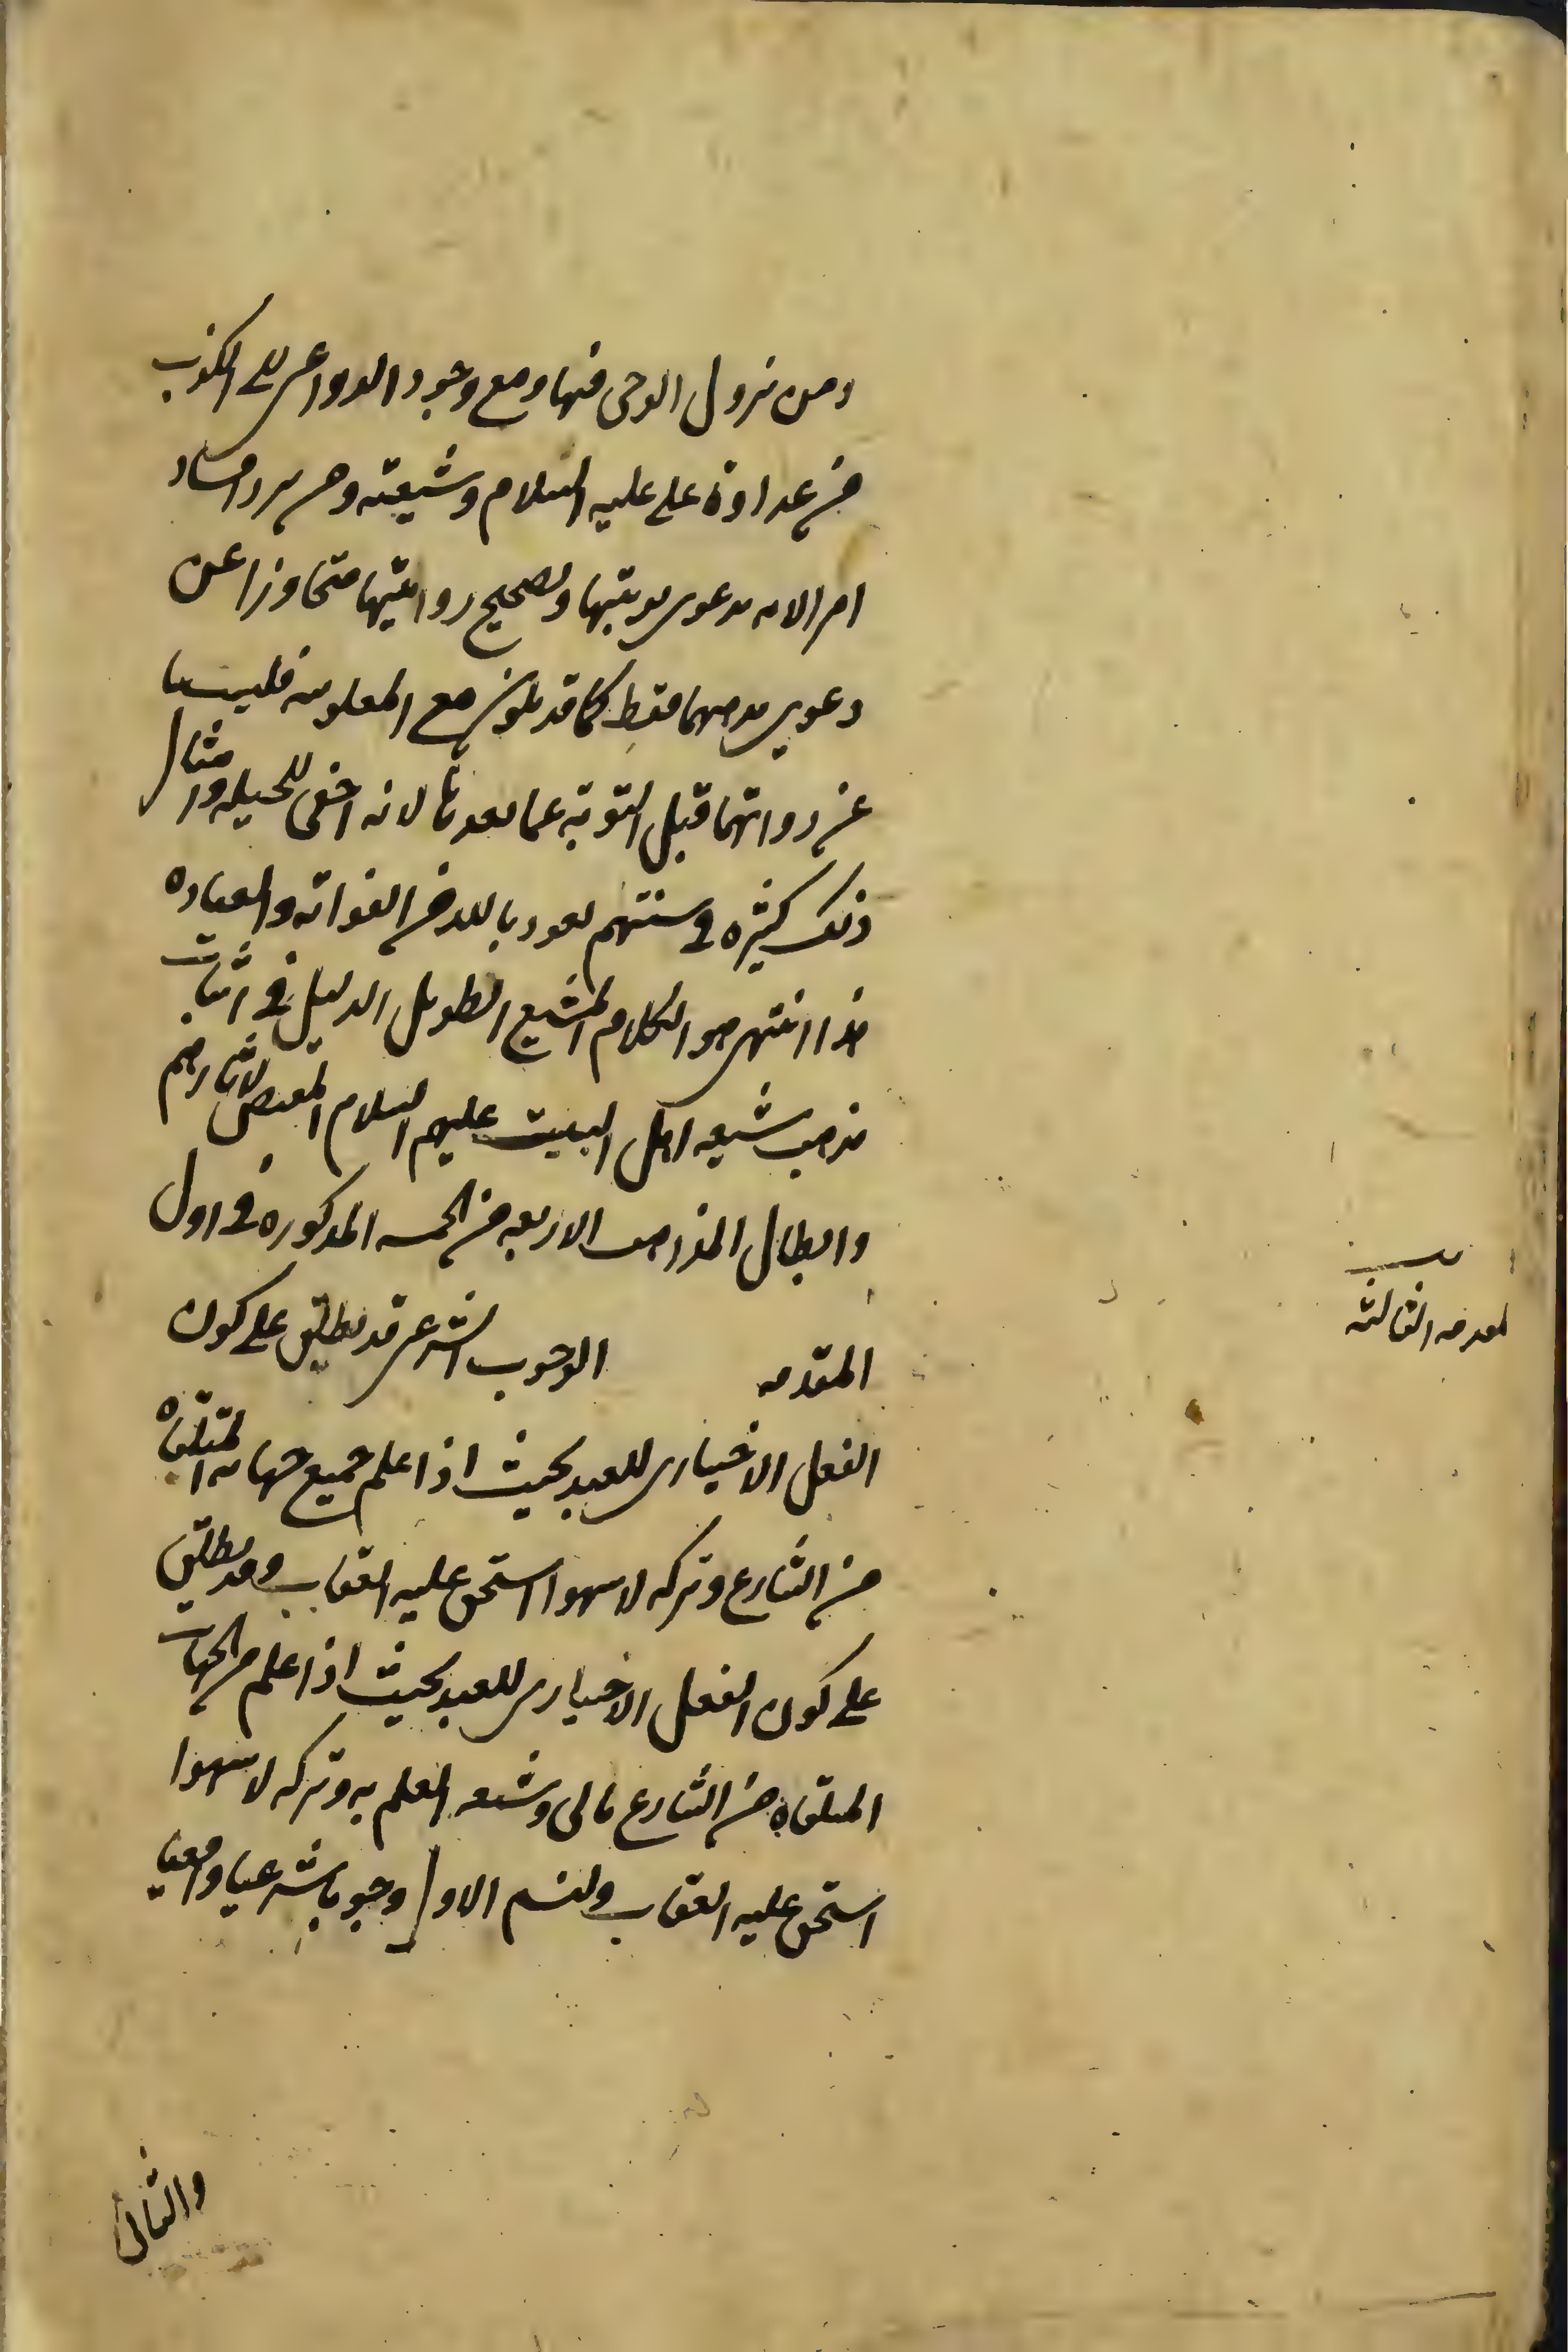 ومن نزول الوحى فيها ومع وجود الدواعى للكذب
من عداوة على عليه السلام وشيعته ومن يريد افساد
امر الامه بدعوى توبتها وتصحيح روايتها متجاوزا عن
دعوى فقط كما قد مع المعلومه فليسا
عن رواتهما قبل التوبة عما بعدها لانه اخفى للحيله وامثال
ذلك كثيره فى سنتهم نعوذ بالله من الغوايه والعناده
هذا انتهى هو الكلام المشبع الطويل الذيل فى اثبات
مذهب شيعه اهل البيت عليهم السلام المقتص لاثارهم
وابطال المذاهب الاربعه من الخمسه المذكوره فى اول
المقدمه الوجوب الشرعى قد يطلق على كون
الفعل الاختيارى للعبد بحيث اذا علم جميع جهاته المتلقاه
من الشارع وتركه لا سهوا استحق عليه العقاب وقد يطلق
على كون الفعل الاختيارى للعبد بحيث اذا علم من الجهات
المتلقاه من الشارع ما لى وسعه العلم به وتركه لا سهوا
استحق عليه العقاب ولنسم الاول وجوبا شرعيا واقعيا
والثانى
المقدمه الثالثه